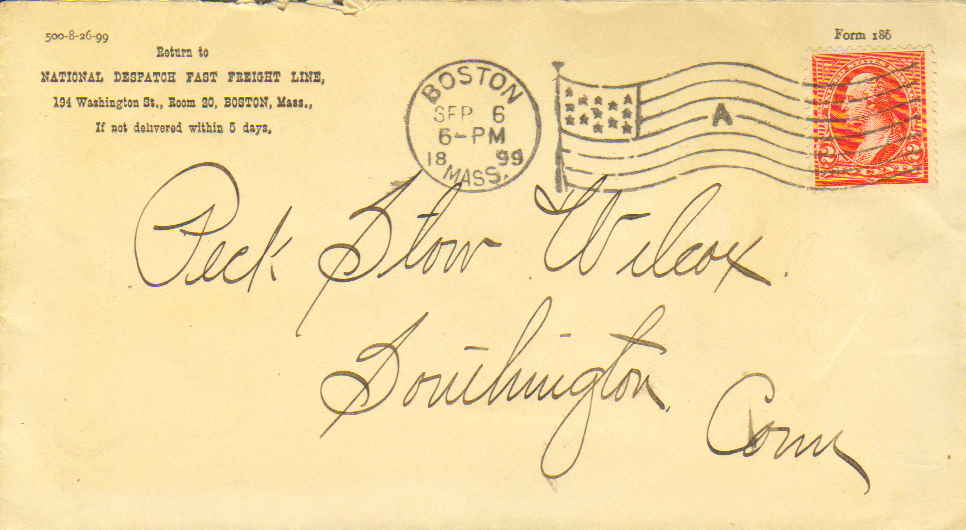 500-8-26-99
Form 186
Return to
NATIONAL DESPATCH FAST FREIGHT LINE,
194 Washington St., Room 20, BOSTON, Mass.,
If not delivered within 5 days.
BOSTON
SEP 6
6-PM
18 99
MASS.
A
2 2
Peck Stow Wilcox.
Southington
Conn